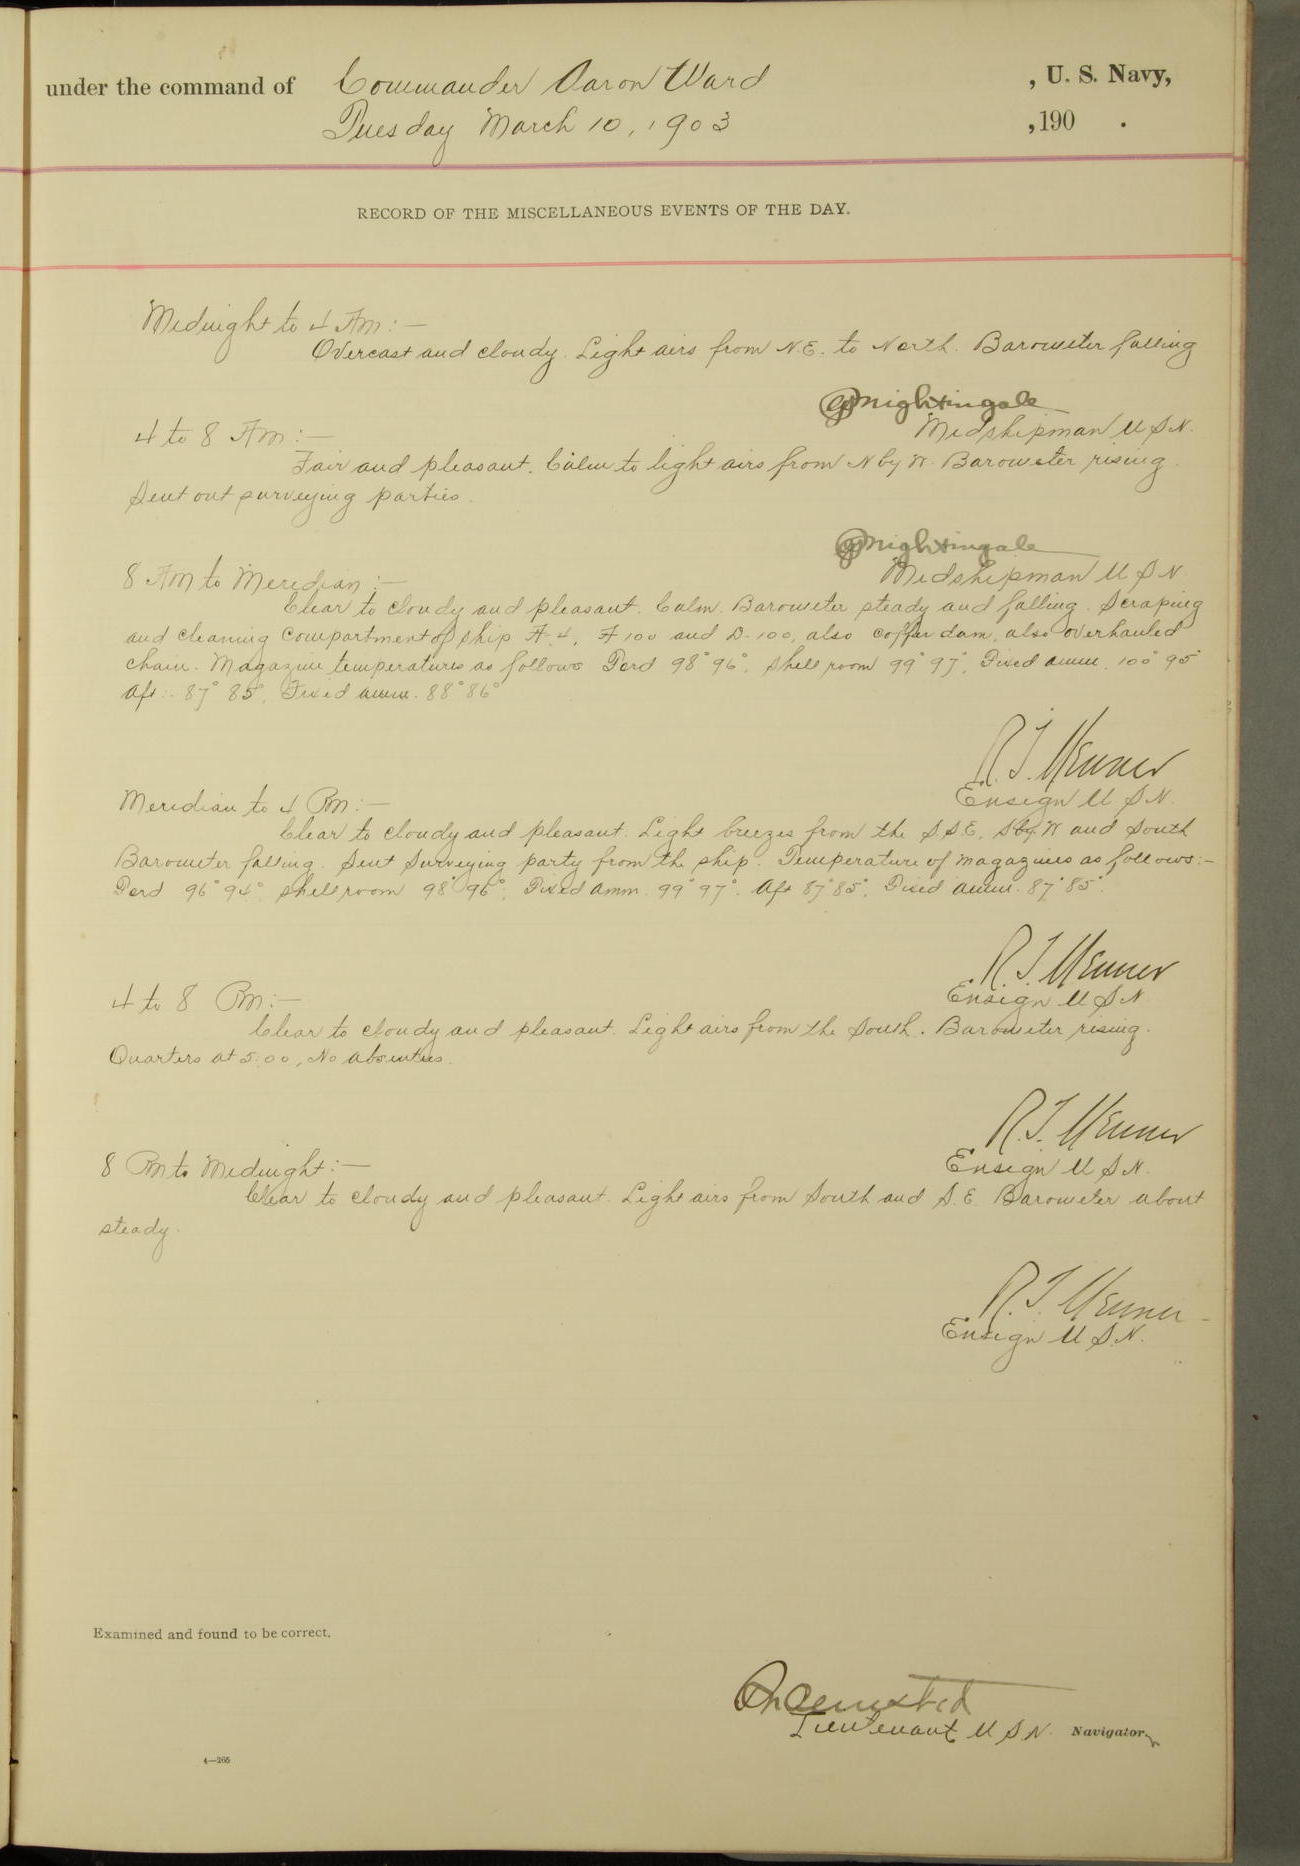 under the command of Commander Aaron Ward , U. S. Navy,
Tuesday March 10, 1903 , 190 .
RECORD OF THE MISCELLANEOUS EVENTS OF THE DAY.
Midnight to 4 AM:—
Overcast and cloudy. Light airs from N.E. to North. Barometer falling
Nightingale
Midshipman U S N.
4 to 8 AM:—
Fair and pleasant. Calm to light airs from N by W. Barometer rising.
Sent out surveying parties.
Nightingale
Midshipman U S N
8 AM to Meridian:—
Clear to cloudy and pleasant. Calm. Barometer steady and falling. Scraping
and cleaning compartment of ship A-4, A 100 and D-100, also coffer dam, also overhauled
chain. Magazine temperatures as follows Ford 98° 96°, shell room 99° 97°, Fixed amm. 100° 95°
Aft:- 87° 85°, Fixed amm. 88° 86°
R. T. Menner
Ensign U S N.
Meridian to 4 PM:—
Clear to cloudy and pleasant. Light breezes from the S S E, S by W and South
Barometer falling. Sent Surveying party from the ship. Temperature of magazines as follows:—
Ford 96° 94°, shell room 98° 96°, Fixed amm. 99° 97°. Aft 87° 85°, Fixed amm. 87° 85°.
R. T. Menner
Ensign U S N
4 to 8 PM:—
Clear to cloudy and pleasant. Light airs from the South. Barometer rising.
Quarters at 5:00, No absentees.
R. T. Menner
Ensign U S N.
8 PM to Midnight:—
Clear to cloudy and pleasant. Light airs from South and S. E. Barometer about
steady.
R. T. Menner
Ensign U S N.
Examined and found to be correct.
Lieutenant U S N. Navigator.
4—265